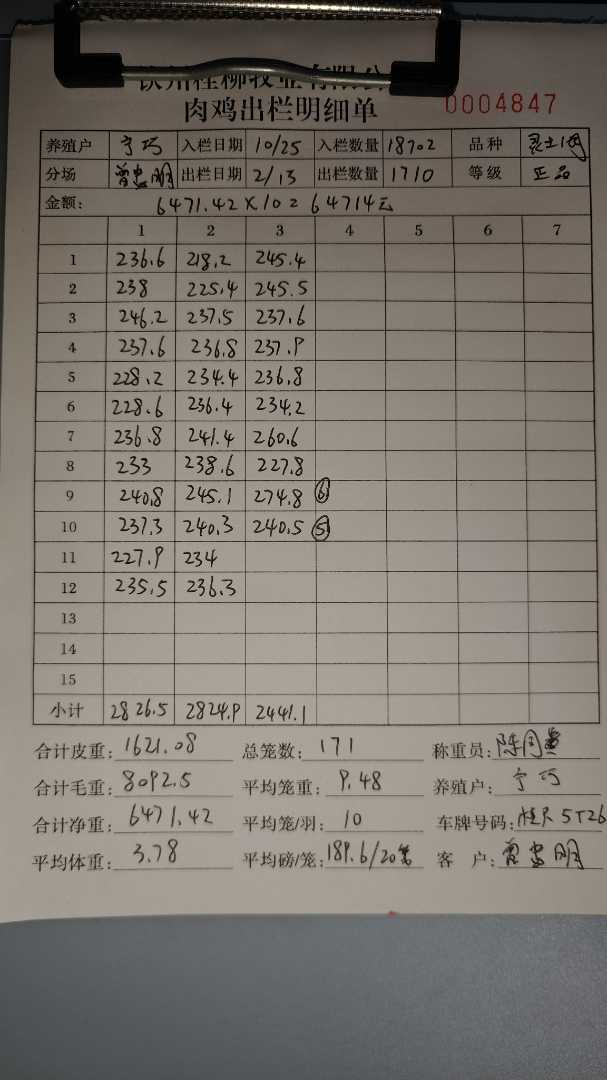 钦州桂柳牧业有限公
肉鸡出栏明细单 0004847
养殖户 宁巧 入栏日期 10/25 入栏数量 18702 品种
分场 曾忠明 出栏日期 2/13 出栏数量 1710 等级 正品
金额: 6471.42×10=64714元
1 2 3 4 5 6 7
1 236.6 218.2 245.4
2 238 225.4 245.5
3 246.2 237.5 237.6
4 237.6 236.8 237.9
5 228.2 234.4 236.8
6 228.6 236.4 234.2
7 236.8 241.4 260.6
8 233 238.6 227.8
9 240.8 245.1 274.8 ⑥
10 237.3 240.3 240.5 ⑤
11 227.9 234
12 235.5 236.3
13
14
15
小计 2826.5 2824.9 2441.1
合计皮重: 1621.08 总笼数: 171 称重员:
合计毛重: 8092.5 平均笼重: 9.48 养殖户: 宁巧
合计净重: 6471.42 平均笼/羽: 10 车牌号码: 5T26
平均体重: 3.78 平均磅/笼: 189.6/20笼 客户: 曾忠明